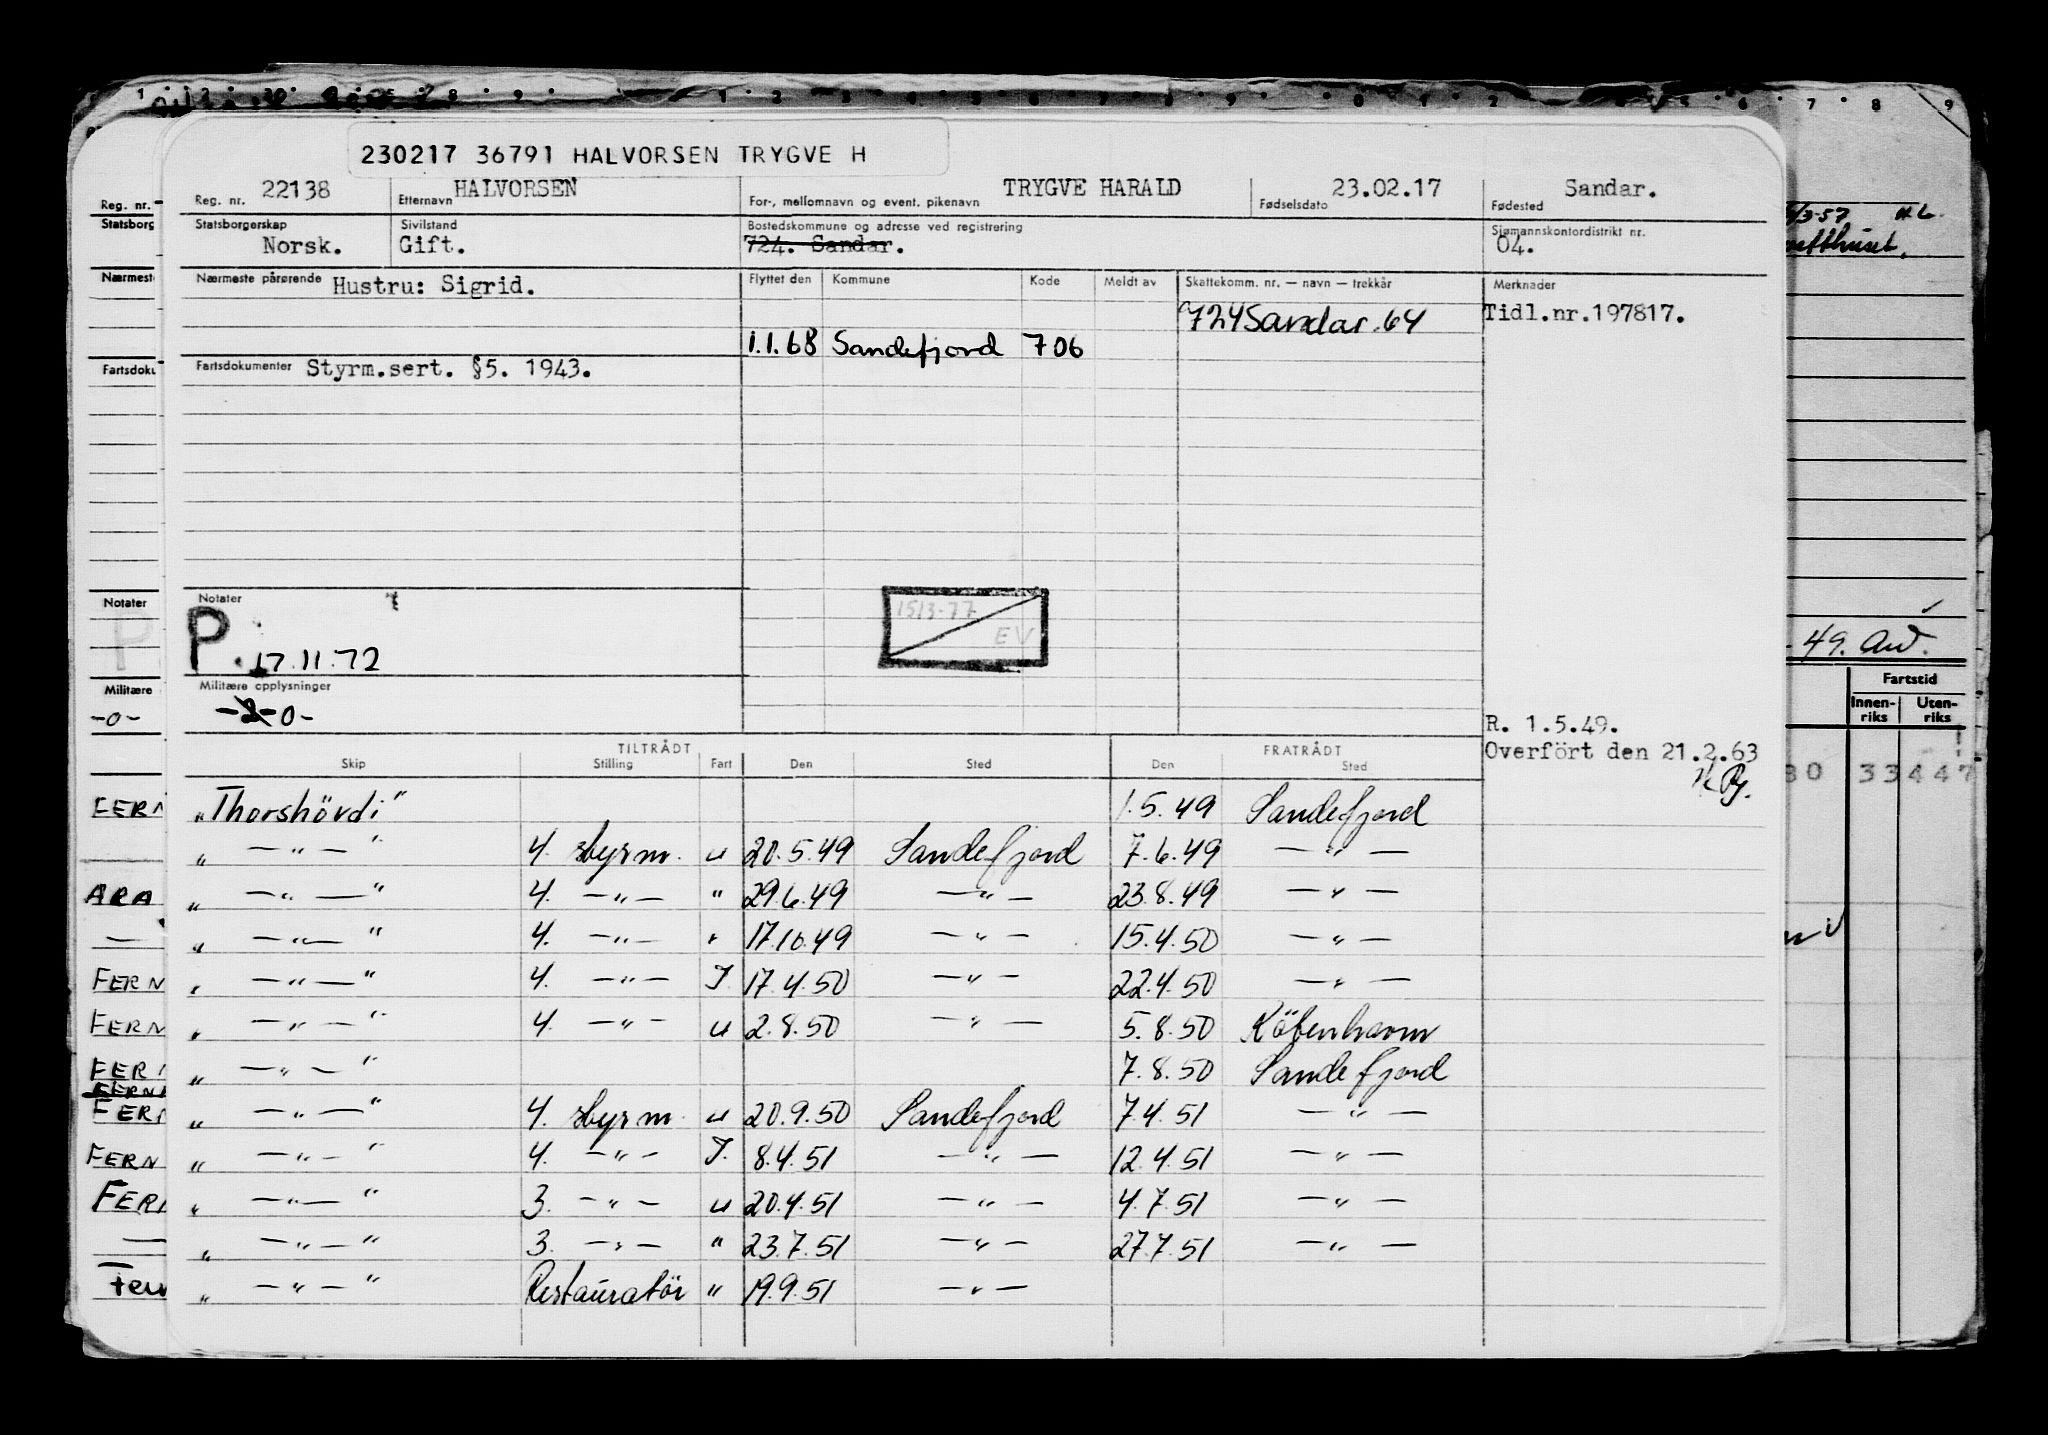 230217 36791 HALVORSEN TRYGVE H
Reg. nr. 22138 Etternavn HALVORSEN For-, mellomnavn og event. pikenavn TRYGVE HARALD Fødselsdato 23.02.17 Fødested Sandar.
Statsborgerskap Norsk. Sivilstand Gift. Bostedskommune og adresse ved registrering 724. Sandar. Sjømannskontordistrikt nr. 04.
Nærmeste pårørende Hustru: Sigrid. Flyttet den Kommune Kode Meldt av Skattekomm. nr. — navn — trekkår Merknader
724 Sandar. 64 Tidl.nr.197817.
1.1.68 Sandefjord 706
Fartsdokumenter Styrm.sert. §5. 1943.
Notater
P. 17.11.72
1513-77
EV
Militære opplysninger
-0-
R. 1.5.49.
Overfört den 21.2.63
TILTRÅDT FRATRÅDT
Skip Stilling Fart Den Sted Den Sted
„Thorshövdi" 1.5.49 Sandefjord
„ —„— " 4. styrm. u 20.5.49 Sandefjord 7.6.49 —„—
„ —„— " 4. —„— " 29.6.49 —„— 23.8.49 —„—
„ —„— " 4. —„— " 17.10.49 —„— 15.4.50 —„—
„ —„— " 4. —„— I. 17.4.50 —„— 22.4.50 —„—
„ —„— " 4. —„— u 2.8.50 —„— 5.8.50 Köbenhavn
„ —„— " 7.8.50 Sandefjord
„ —„— " 4. styrm. u 20.9.50 Sandefjord 7.4.51 —„—
„ —„— " 4. —„— I. 8.4.51 —„— 12.4.51 —„—
„ —„— " 3. —„— u 20.4.51 —„— 4.7.51 —„—
„ —„— " 3. —„— " 23.7.51 —„— 27.7.51 —„—
„ —„— " Restauratör " 19.9.51 —„—
Reg. nr.
Statsborg
Nærmest
Fartsdoku
Notater
P
Militære
-0-
FERN
ARA
FERN
FERN
FER
FERN
FERN
FERN
FERN
Fern
49. Av.
Fartstid
Innen-riks Uten-riks
80 33447